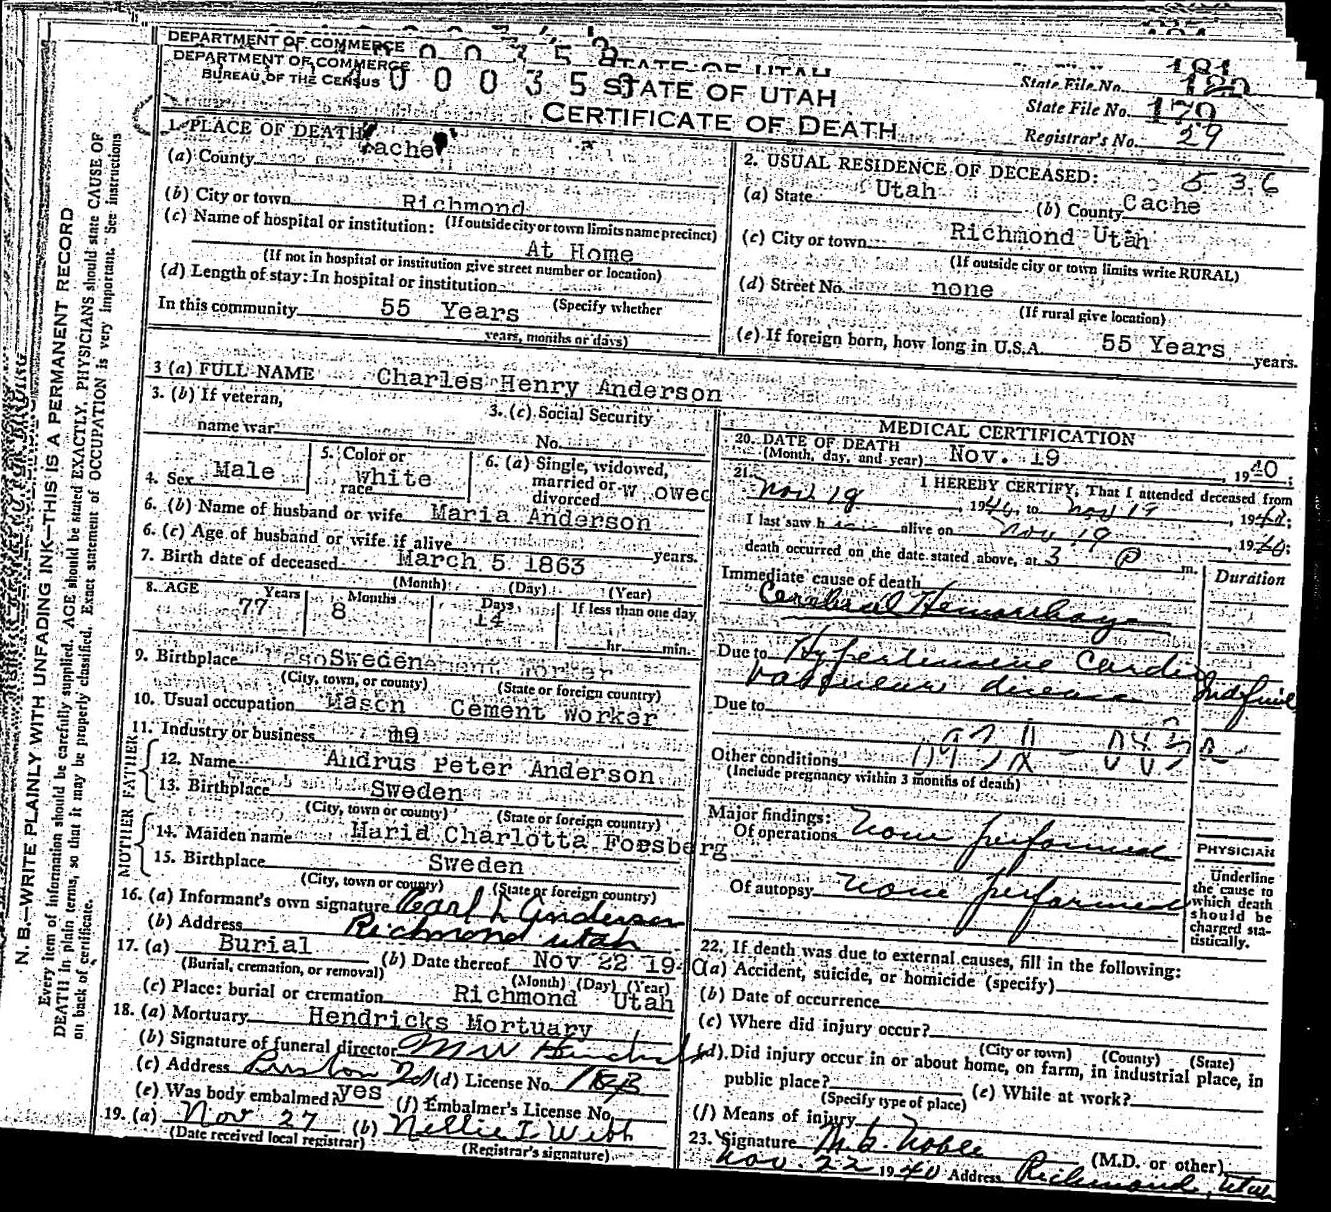 DEPARTMENT OF COMMERCE
DEPARTMENT OF COMMERCE
BUREAU OF THE CENSUS
STATE OF UTAH
STATE OF UTAH
CERTIFICATE OF DEATH
State File No.
State File No. 179
Registrar's No. 29
N. B.—WRITE PLAINLY WITH UNFADING INK—THIS IS A PERMANENT RECORD
Every item of information should be carefully supplied. AGE should be stated EXACTLY. PHYSICIANS should state CAUSE OF
DEATH in plain terms, so that it may be properly classified. Exact statement of OCCUPATION is very important. See instructions
on back of certificate.
1. PLACE OF DEATH
(a) County Cache
(b) City or town Richmond
(If outside city or town limits name precinct)
(c) Name of hospital or institution:
At Home
(If not in hospital or institution give street number or location)
(d) Length of stay: In hospital or institution
(Specify whether
In this community 55 Years
years, months or days)
2. USUAL RESIDENCE OF DECEASED:
536
(a) State Utah (b) County Cache
(c) City or town Richmond Utah
(If outside city or town limits write RURAL)
(d) Street No. none
(If rural give location)
(e) If foreign born, how long in U.S.A. 55 Years years.
3 (a) FULL NAME Charles Henry Anderson
3. (b) If veteran,
name war
3. (c) Social Security
No.
4. Sex Male
5. Color or
race White
6. (a) Single, widowed,
married or
divorced W owed
6. (b) Name of husband or wife Maria Anderson
6. (c) Age of husband or wife if alive years.
7. Birth date of deceased March 5 1863
(Month) (Day) (Year)
8. AGE Years 77 Months 8 Days 14 If less than one day
hr. min.
9. Birthplace Sweden
(City, town, or county) (State or foreign country)
10. Usual occupation Mason Cement Worker
11. Industry or business
FATHER
12. Name Andrus Peter Anderson
13. Birthplace Sweden
(City, town or county) (State or foreign country)
MOTHER
14. Maiden name Maria Charlotta Forsberg
15. Birthplace Sweden
(City, town or county) (State or foreign country)
16. (a) Informant's own signature Carl L Anderson
(b) Address Richmond Utah
17. (a) Burial (b) Date thereof Nov 22 1940
(Burial, cremation, or removal) (Month) (Day) (Year)
(c) Place: burial or cremation Richmond Utah
18. (a) Mortuary Hendricks Mortuary
(b) Signature of funeral director M W Hendricks
(c) Address Preston Id (d) License No.
(e) Was body embalmed? yes (f) Embalmer's License No.
19. (a) Nov 27 (b) Nellie I. Webb
(Date received local registrar) (Registrar's signature)
MEDICAL CERTIFICATION
20. DATE OF DEATH
(Month, day, and year) Nov. 19, 1940;
21. I HEREBY CERTIFY, That I attended deceased from
Nov 19, 1940, to Nov 19, 1940;
I last saw him alive on Nov 19, 1940;
death occurred on the date stated above, at 3 P m.
Duration
Immediate cause of death
Cerebral Hemorrhage
Due to Hypertensive Cardio
vascular disease
Due to
Other conditions
(Include pregnancy within 3 months of death)
Major findings:
Of operations none performed
Of autopsy none performed
PHYSICIAN
Underline
the cause to
which death
should be
charged sta-
tistically.
22. If death was due to external causes, fill in the following:
(a) Accident, suicide, or homicide (specify)
(b) Date of occurrence
(c) Where did injury occur?
(City or town) (County) (State)
(d) Did injury occur in or about home, on farm, in industrial place, in
public place? (e) While at work?
(Specify type of place)
(f) Means of injury
23. Signature M. C. Noble (M.D. or other)
Nov. 22 1940 Address Richmond, Utah